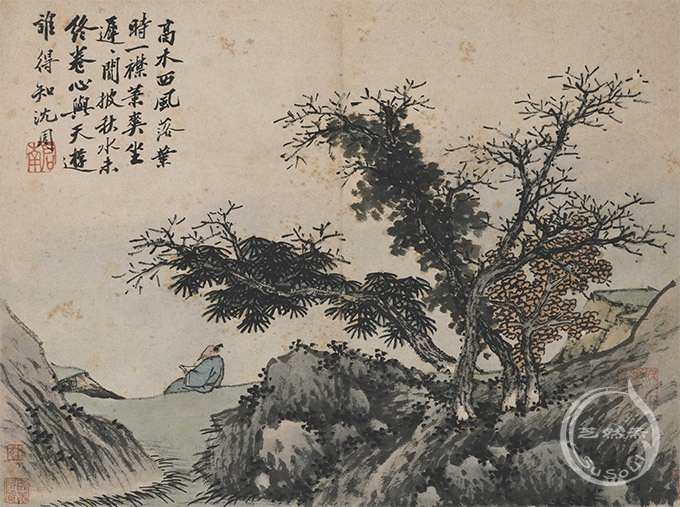 高木西風落葉
時一襟蕭爽坐
遲〻閒披秋水未
終卷心與天遊
誰得知沈周